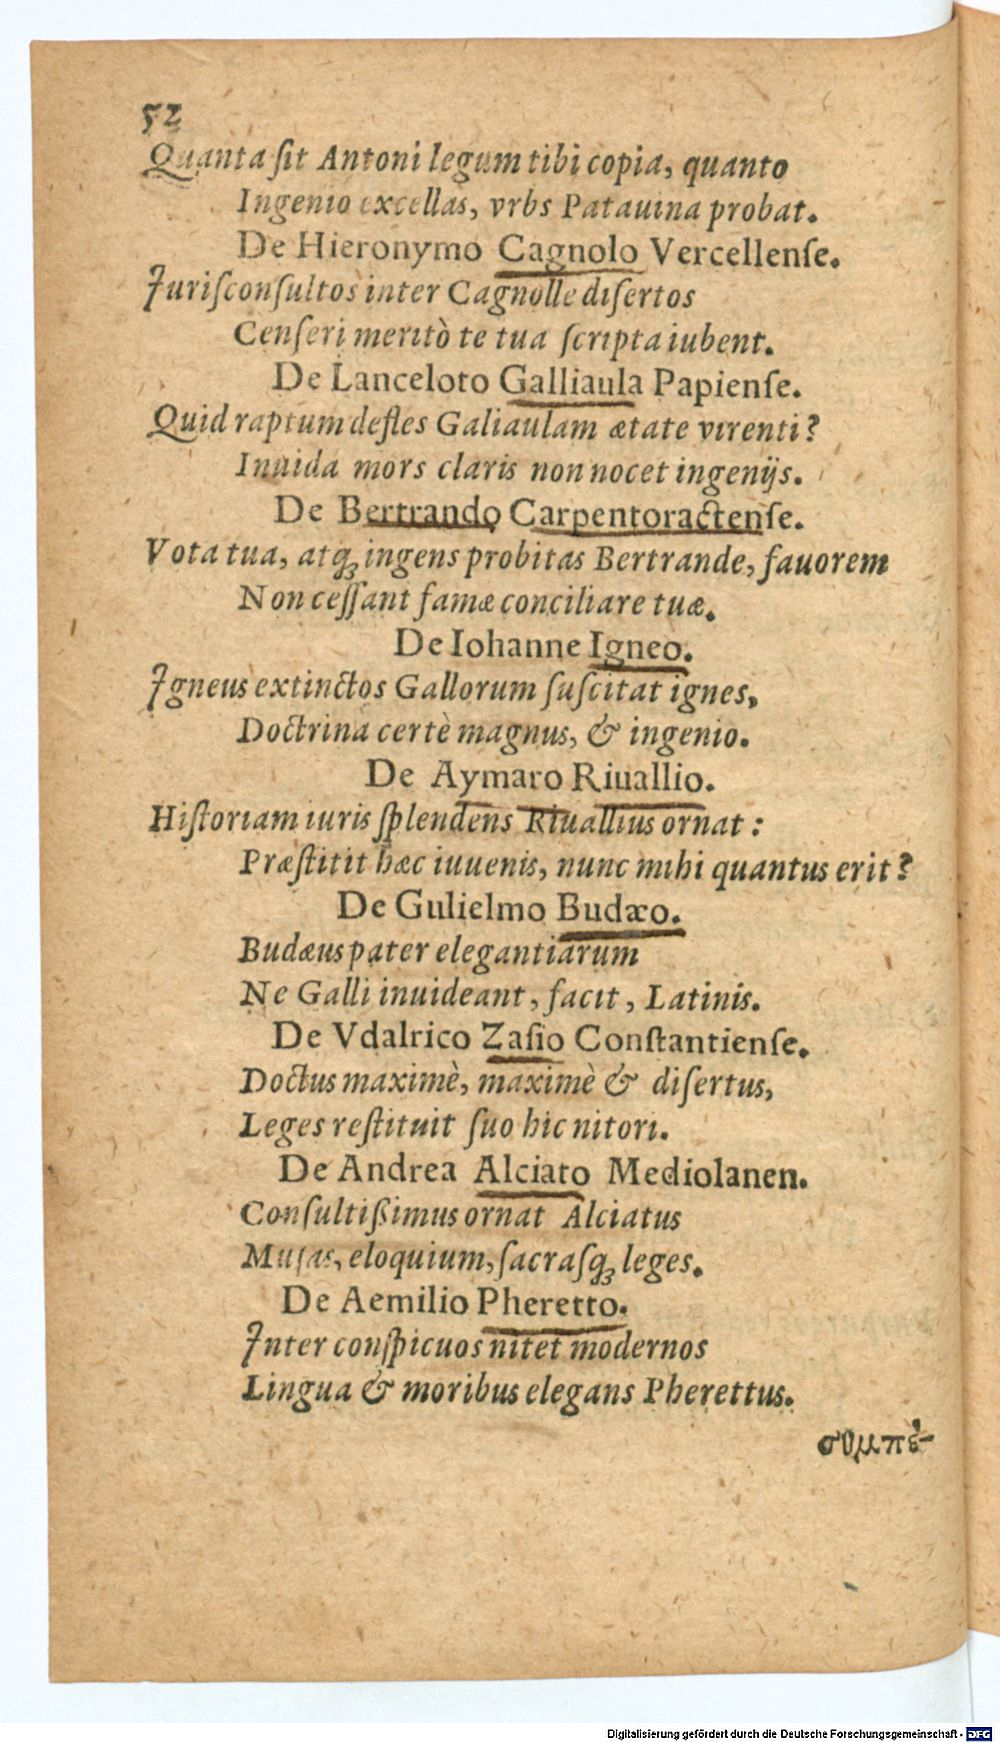 52
Quanta ſit Antoni legum tibi copia, quanto
Ingenio excellas, vrbs Patauina probat.
De Hieronymo Cagnolo Vercellenſe.
Juriſconſultos inter Cagnolle diſertos
Cenſeri meritò te tua ſcripta iubent.
De Lanceloto Galliaula Papienſe.
Quid raptum defles Galiaulam ætate virenti?
Inuida mors claris non nocet ingenijs.
De Bertrando Carpentoractenſe.
Vota tua, atqꝫ ingens probitas Bertrande, fauorem
Non ceſſant famæ conciliare tuæ.
De Iohanne Igneo.
Jgneus extinctos Gallorum ſuſcitat ignes,
Doctrina certè magnus, & ingenio.
De Aymaro Riuallio.
Hiſtoriam iuris ſplendens Riuallius ornat:
Præſtitit hæc iuuenis, nunc mihi quantus erit?
De Gulielmo Budæo.
Budæus pater elegantiarum
Ne Galli inuideant, facit, Latinis.
De Vdalrico Zaſio Conſtantienſe.
Doctus maximè, maximè & diſertus,
Leges reſtituit ſuo hic nitori.
De Andrea Alciato Mediolanen.
Conſultißimus ornat Alciatus
Muſas, eloquium, ſacraſqꝫ leges.
De Aemilio Pheretto.
Jnter conſpicuos nitet modernos
Lingua & moribus elegans Pherettus.
συμπέ-
Digitalisierung gefördert durch die Deutsche Forschungsgemeinschaft - DFG